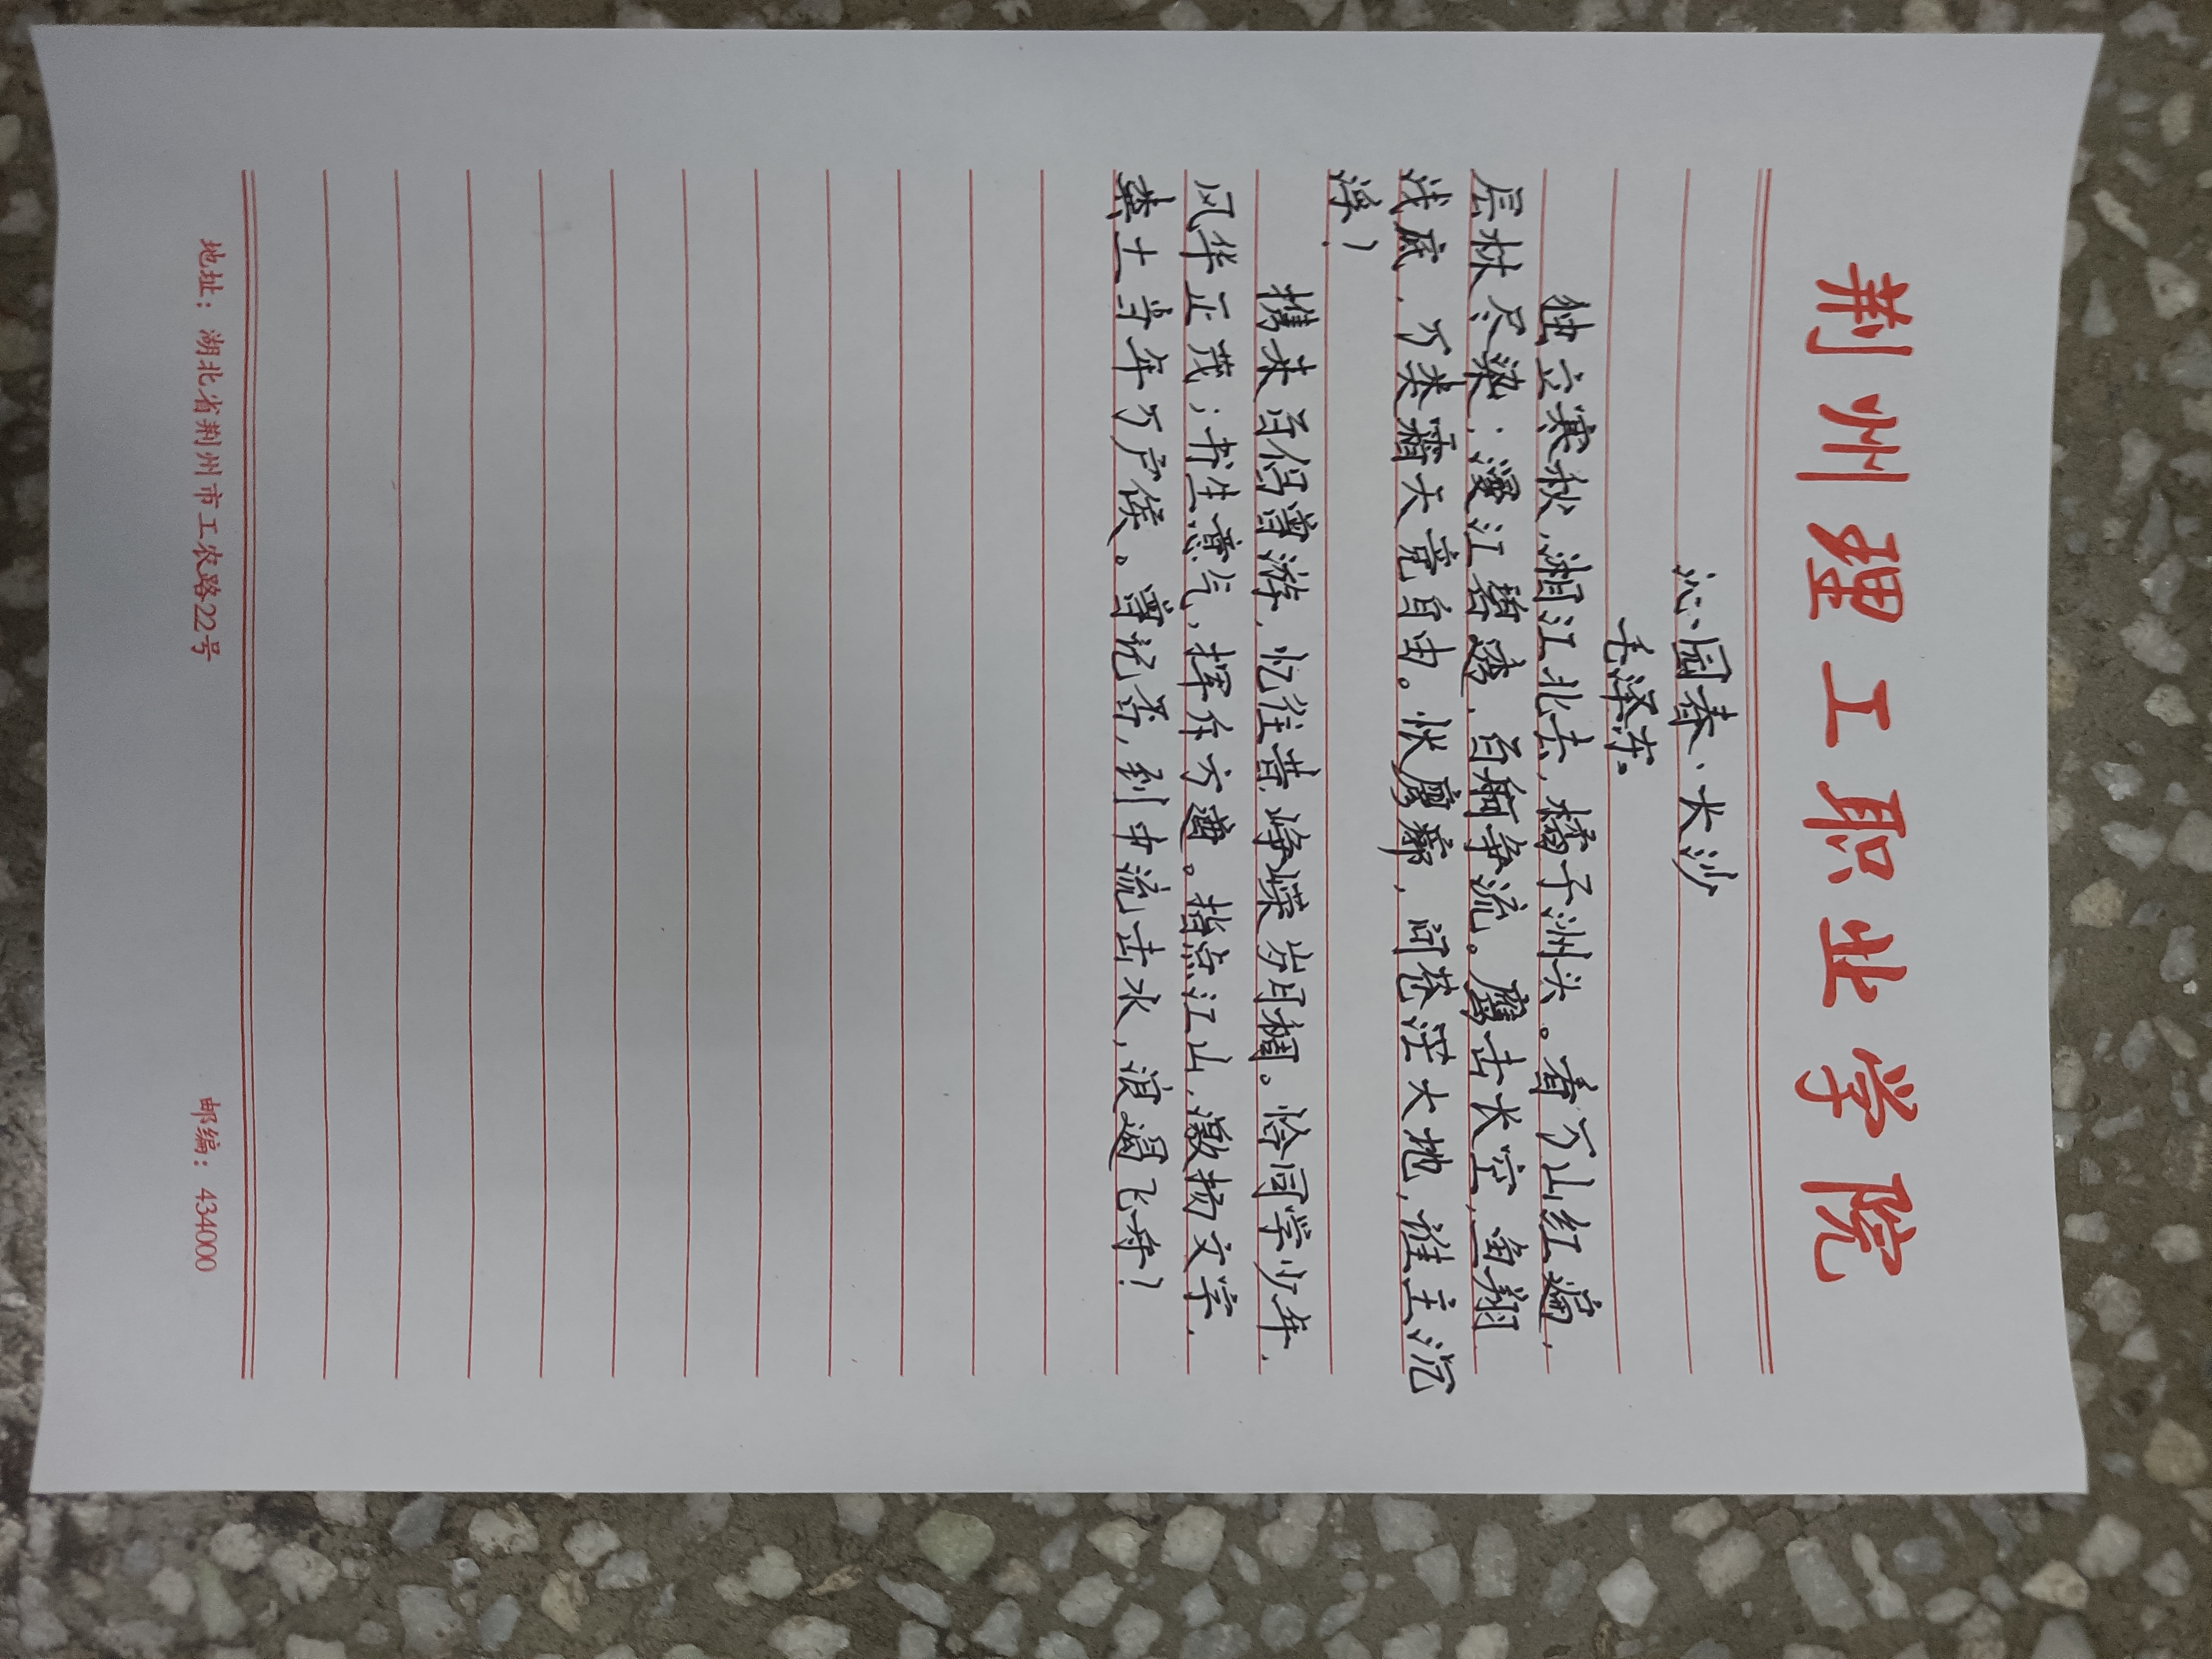 荆州理工职业学院
沁园春·长沙
毛泽东。
独立寒秋,湘江北去,橘子洲头。看万山红遍,
层林尽染;漫江碧透,百舸争流。鹰击长空,鱼翔
浅底,万类霜天竞自由。怅廖廓,问苍茫大地,谁主沉
浮!
携来百侣曾游,忆往昔,峥嵘岁月稠。恰同学少年,
风华正茂;书生意气,挥斥方遒。指点江山,激扬文字,
粪土当年万户侯。曾记否,到中流击水,浪遏飞舟!
地址:湖北省荆州市工农路22号 邮编:434000